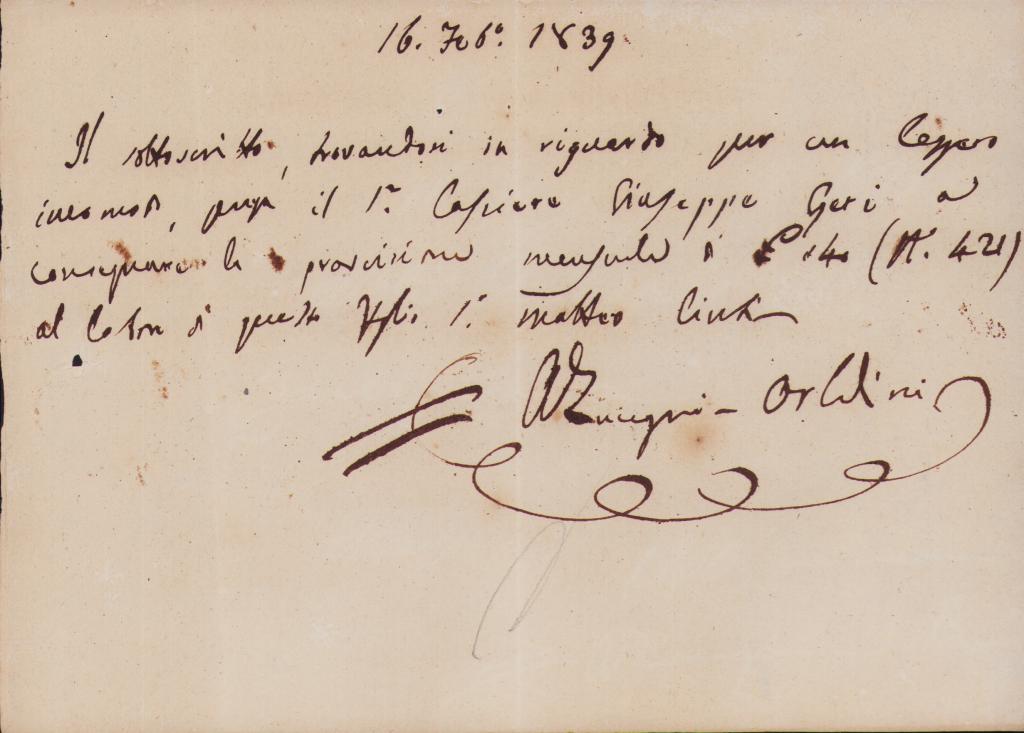 16. Feb.° 1839
Il sottoscritto, trovandosi in riguardo per un leggero
incomodo, prega il S.r Cassiere Giuseppe Geri a
consegnare la provvisione mensuale di £ 140 (N. 421)
al latore di questo Uffizio S.r Matteo
A Zuccagni-Orlandini